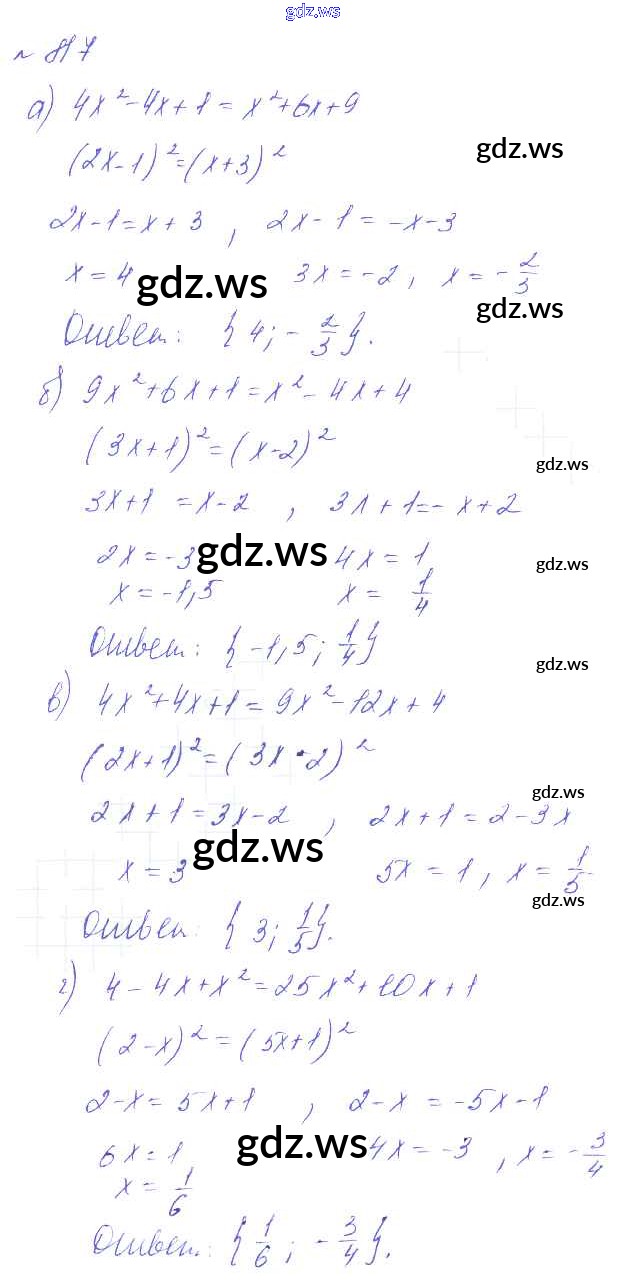 gdz.ws
№ 817
а) 4x² - 4x + 1 = x² + 6x + 9
(2x - 1)² = (x + 3)²
gdz.ws
2x - 1 = x + 3 , 2x - 1 = -x - 3
x = 4 3x = -2, x = -2/3
gdz.ws
gdz.ws
Ответ: {4; -2/3}.
б) 9x² + 6x + 1 = x² - 4x + 4
(3x + 1)² = (x - 2)²
gdz.ws
3x + 1 = x - 2 , 3x + 1 = -x + 2
2x = -3 4x = 1
gdz.ws
gdz.ws
x = -1,5 x = 1/4
Ответ: {-1,5; 1/4}
gdz.ws
в) 4x² + 4x + 1 = 9x² - 12x + 4
(2x + 1)² = (3x - 2)²
gdz.ws
2x + 1 = 3x - 2 , 2x + 1 = 2 - 3x
gdz.ws
x = 3 5x = 1, x = 1/5
gdz.ws
Ответ: {3; 1/5}.
г) 4 - 4x + x² = 25x² + 10x + 1
(2 - x)² = (5x + 1)²
2 - x = 5x + 1 , 2 - x = -5x - 1
gdz.ws
6x = 1 4x = -3 , x = -3/4
x = 1/6
Ответ: {1/6; -3/4}.